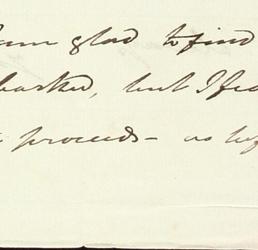 am glad to find
barked, but I fea
proceeds - as